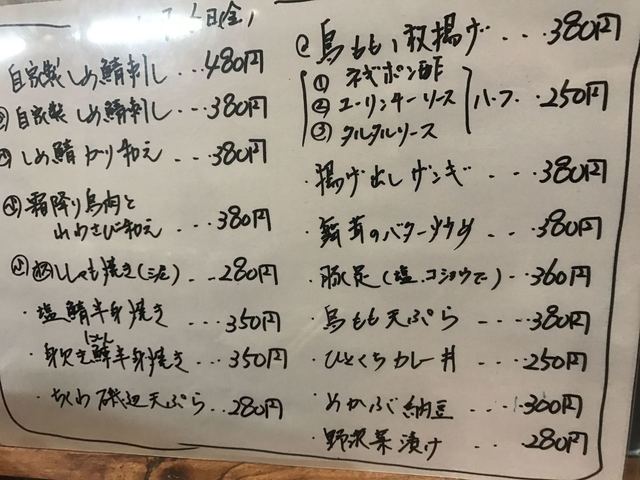 日(金)
自家製しめ鯖刺し...480円
自家製しめ鯖刺し...380円
しめ鯖ガリ和え...380円
霜降り鳥肉と
山わさび和え...380円
ししゃも焼き(三尾)...280円
塩鯖半身焼き...350円
にしん
・身欠き鰊半身焼き...350円
・ちくわ磯辺天ぷら...280円
鳥もも1枚揚げ...380円
①ネギポン酢
②ユーリンチーソース ハーフ...250円
③タルタルソース
・揚げ出しザンギ...380円
・舞茸のバター炒め...380円
・豚足(塩.コショウで)...360円
・鳥もも天ぷら...380円
・ひとくちカレー丼...250円
・めかぶ納豆...300円
・野沢菜漬け...280円